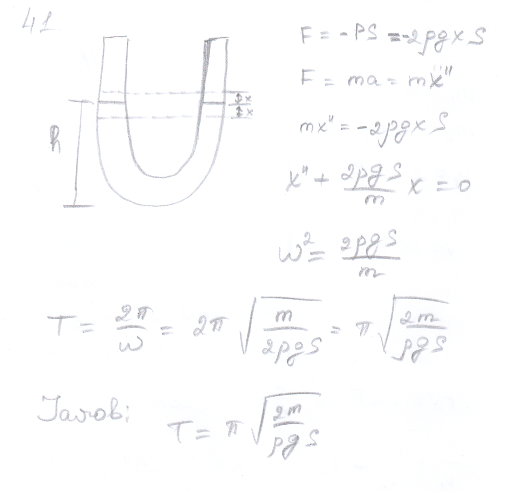 41
h
x
x
F = -PS = -2ρgxS
F = ma = mx"
mx" = -2ρgxS
x" + 2ρgS/m x = 0
ω² = 2ρgS/m
T = 2π/ω = 2π√(m/2ρgS) = π√(2m/ρgS)
Javob: T = π√(2m/ρgS)